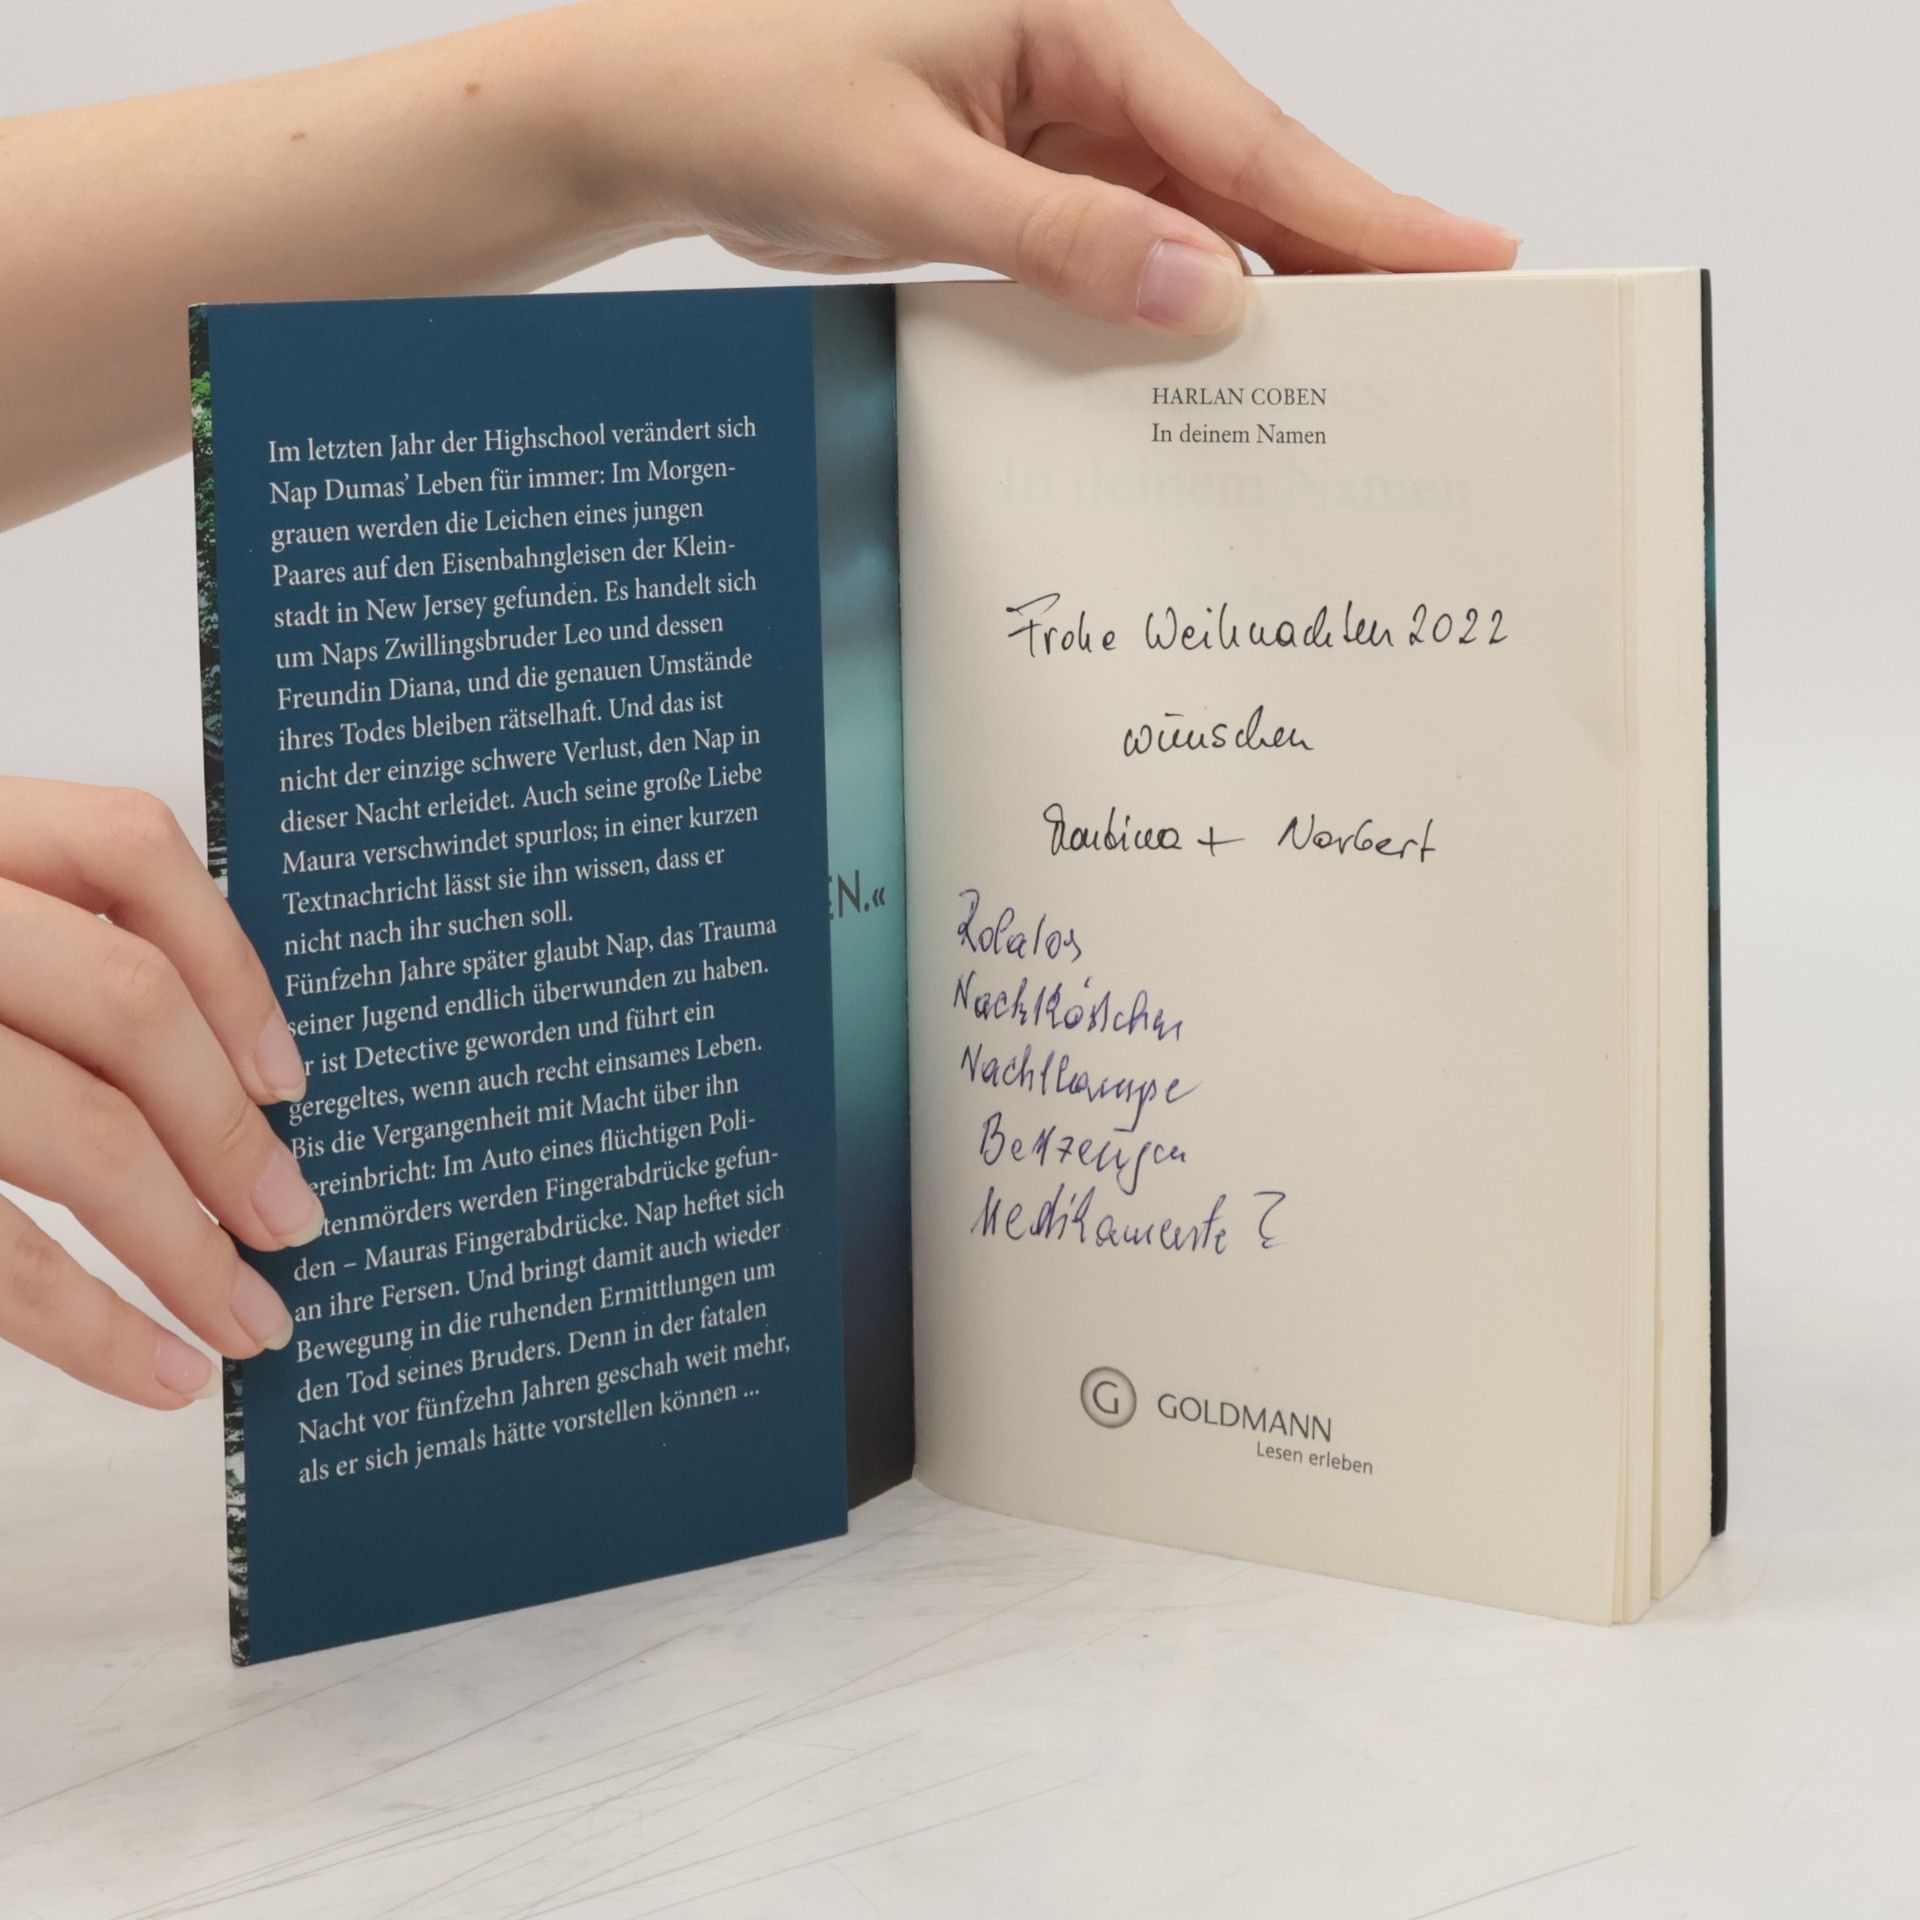 Im letzten Jahr der Highschool verändert sich
Nap Dumas’ Leben für immer: Im Morgen-
grauen werden die Leichen eines jungen
Paares auf den Eisenbahngleisen der Klein-
stadt in New Jersey gefunden. Es handelt sich
um Naps Zwillingsbruder Leo und dessen
Freundin Diana, und die genauen Umstände
ihres Todes bleiben rätselhaft. Und das ist
nicht der einzige schwere Verlust, den Nap in
dieser Nacht erleidet. Auch seine große Liebe
Maura verschwindet spurlos; in einer kurzen
Textnachricht lässt sie ihn wissen, dass er
nicht nach ihr suchen soll.
Fünfzehn Jahre später glaubt Nap, das Trauma
seiner Jugend endlich überwunden zu haben.
r ist Detective geworden und führt ein
geregeltes, wenn auch recht einsames Leben.
Bis die Vergangenheit mit Macht über ihn
ereinbricht: Im Auto eines flüchtigen Poli-
tenmörders werden Fingerabdrücke gefun-
den – Mauras Fingerabdrücke. Nap heftet sich
an ihre Fersen. Und bringt damit auch wieder
Bewegung in die ruhenden Ermittlungen um
den Tod seines Bruders. Denn in der fatalen
Nacht vor fünfzehn Jahren geschah weit mehr,
als er sich jemals hätte vorstellen können ...
EN.«
HARLAN COBEN
In deinem Namen
Frohe Weihnachten 2022
wünschen
+ Norbert
Nachtlampe
Bettzeug
Medikamente ?
G GOLDMANN
Lesen erleben